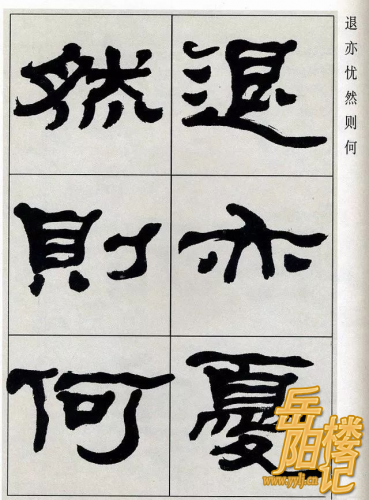 退亦憂
然則何
退亦忧然则何
岳阳楼记
www.yylj.cn